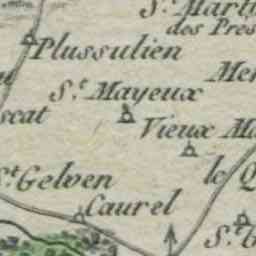 St. Martin
des Pres
Plussulien
St. Mayeux
scat
Vieux
St. Gelven
le
Caurel